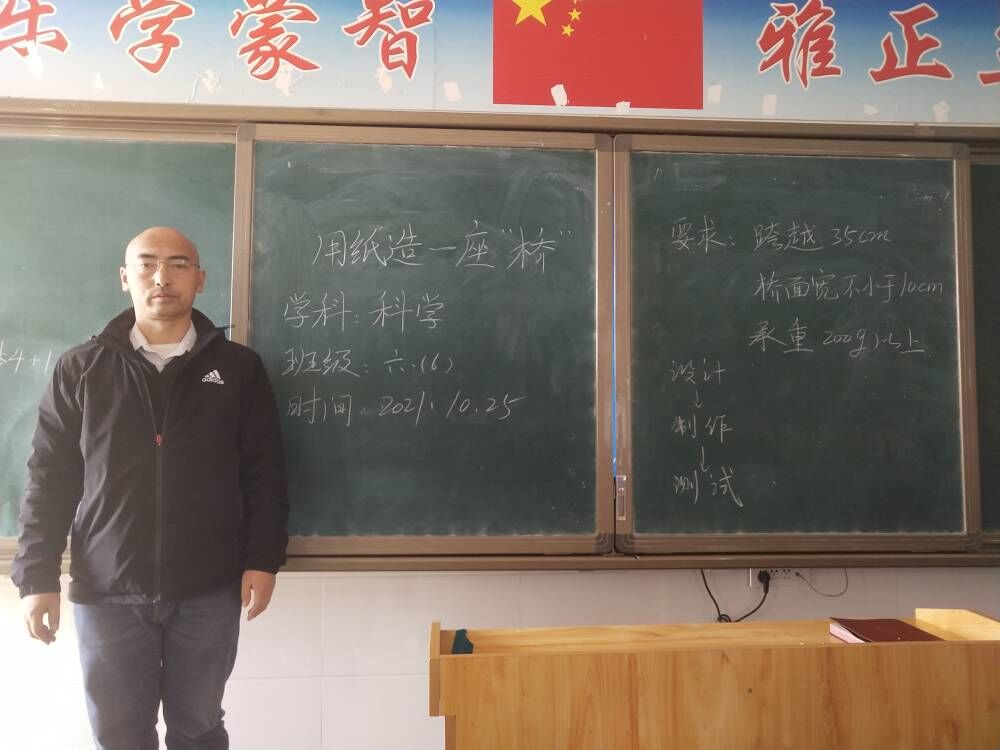 乐学蒙智
雅正
adidas
用纸造一座"桥"
学科：科学
班级：六.(6)
时间：2021.10.25
要求：跨越35cm
桥面宽不小于10cm
承重200g以上
设计
↓
制作
↓
测试
4+1